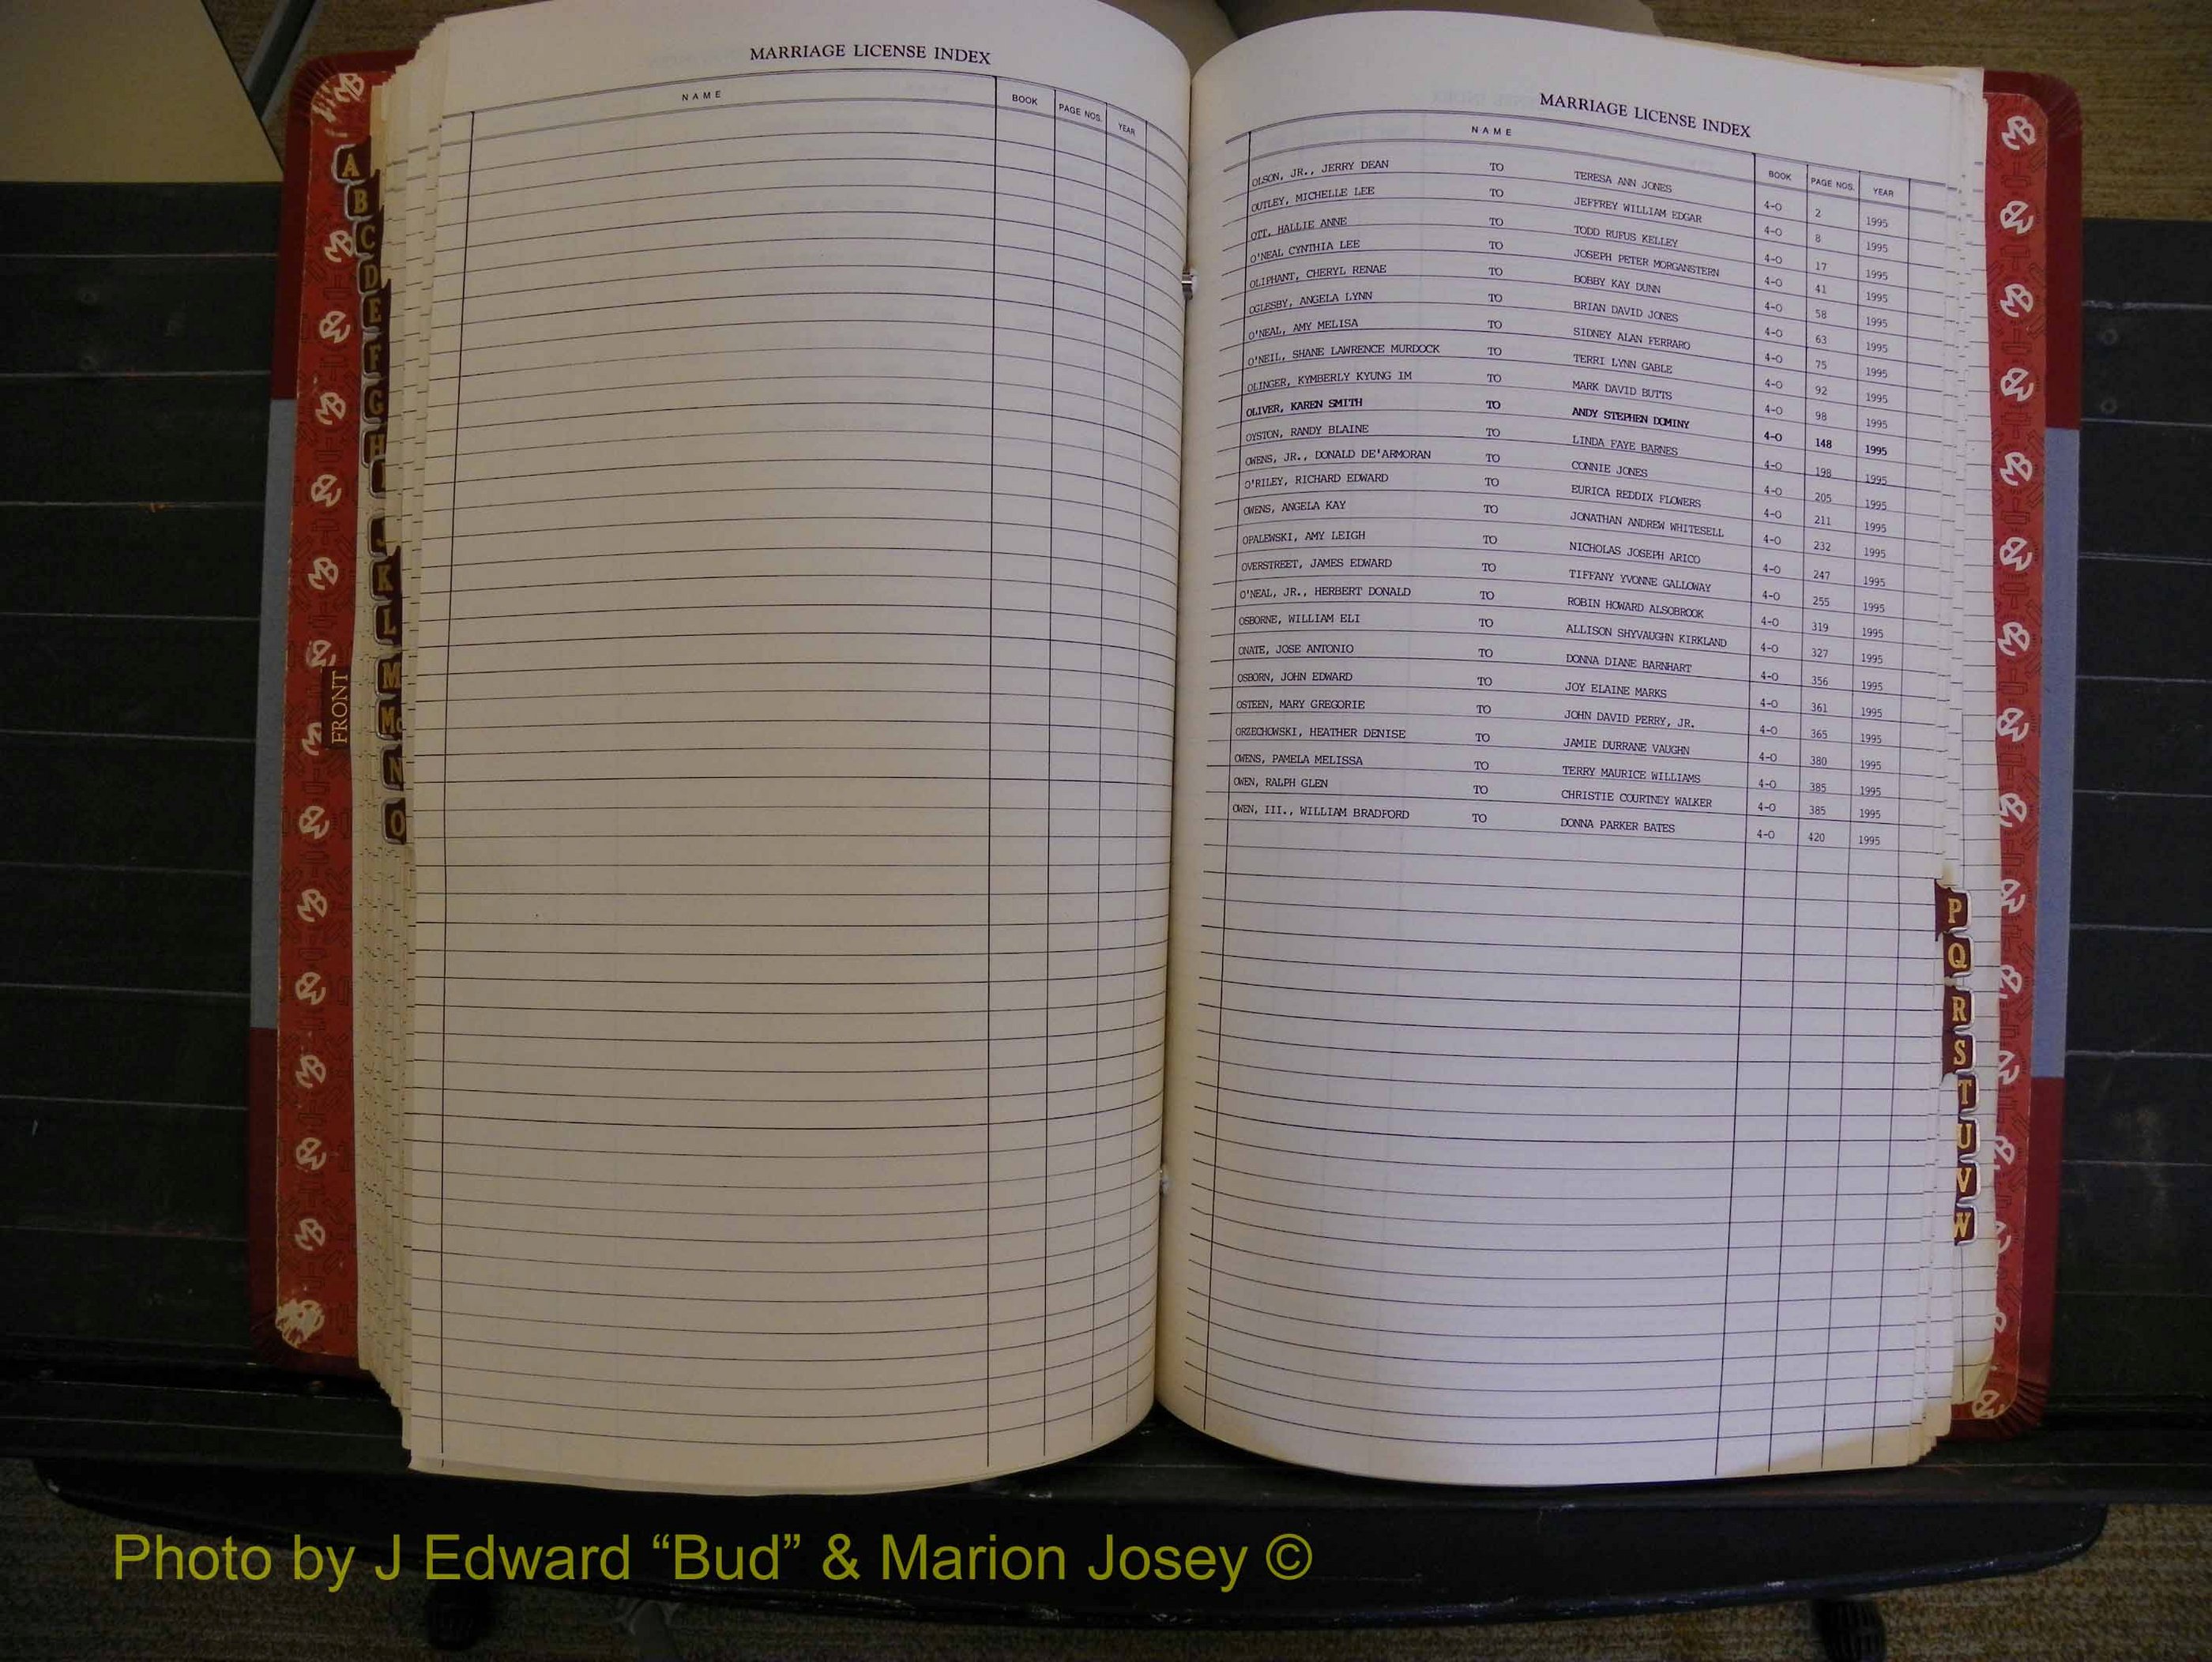 MARRIAGE LICENSE INDEX
NAME BOOK PAGE NOS. YEAR
A
B
C
D
E
F
G
H
I
J
K
L
M
Mc
N
O
FRONT
MARRIAGE LICENSE INDEX
NAME BOOK PAGE NOS. YEAR
OLSON, JR., JERRY DEAN TO TERESA ANN JONES 4-O 2 1995
OUTLEY, MICHELLE LEE TO JEFFREY WILLIAM EDGAR 4-O 8 1995
OTT, HALLIE ANNE TO TODD RUFUS KELLEY 4-O 17 1995
O'NEAL CYNTHIA LEE TO JOSEPH PETER MORGANSTERN 4-O 41 1995
OLIPHANT, CHERYL RENAE TO BOBBY KAY DUNN 4-O 58 1995
OGLESBY, ANGELA LYNN TO BRIAN DAVID JONES 4-O 63 1995
O'NEAL, AMY MELISA TO SIDNEY ALAN FERRARO 4-O 75 1995
O'NEIL, SHANE LAWRENCE MURDOCK TO TERRI LYNN GABLE 4-O 92 1995
OLINGER, KYMBERLY KYUNG IM TO MARK DAVID BUTTS 4-O 98 1995
OLIVER, KAREN SMITH TO ANDY STEPHEN DOMINY 4-O 148 1995
OYSTON, RANDY BLAINE TO LINDA FAYE BARNES 4-O 198 1995
OWENS, JR., DONALD DE'ARMORAN TO CONNIE JONES 4-O 205 1995
O'RILEY, RICHARD EDWARD TO EURICA REDDIX FLOWERS 4-O 211 1995
OWENS, ANGELA KAY TO JONATHAN ANDREW WHITESELL 4-O 232 1995
OPALEWSKI, AMY LEIGH TO NICHOLAS JOSEPH ARICO 4-O 247 1995
OVERSTREET, JAMES EDWARD TO TIFFANY YVONNE GALLOWAY 4-O 255 1995
O'NEAL, JR., HERBERT DONALD TO ROBIN HOWARD ALSOBROOK 4-O 319 1995
OSBORNE, WILLIAM ELI TO ALLISON SHYVAUGHN KIRKLAND 4-O 327 1995
ONATE, JOSE ANTONIO TO DONNA DIANE BARNHART 4-O 356 1995
OSBORN, JOHN EDWARD TO JOY ELAINE MARKS 4-O 361 1995
OSTEEN, MARY GREGORIE TO JOHN DAVID PERRY, JR. 4-O 365 1995
ORZECHOWSKI, HEATHER DENISE TO JAMIE DURRANE VAUGHN 4-O 380 1995
OWENS, PAMELA MELISSA TO TERRY MAURICE WILLIAMS 4-O 385 1995
OWEN, RALPH GLEN TO CHRISTIE COURTNEY WALKER 4-O 385 1995
OWEN, III., WILLIAM BRADFORD TO DONNA PARKER BATES 4-O 420 1995
P
Q
R
S
T
U
V
W
Photo by J Edward “Bud” & Marion Josey ©